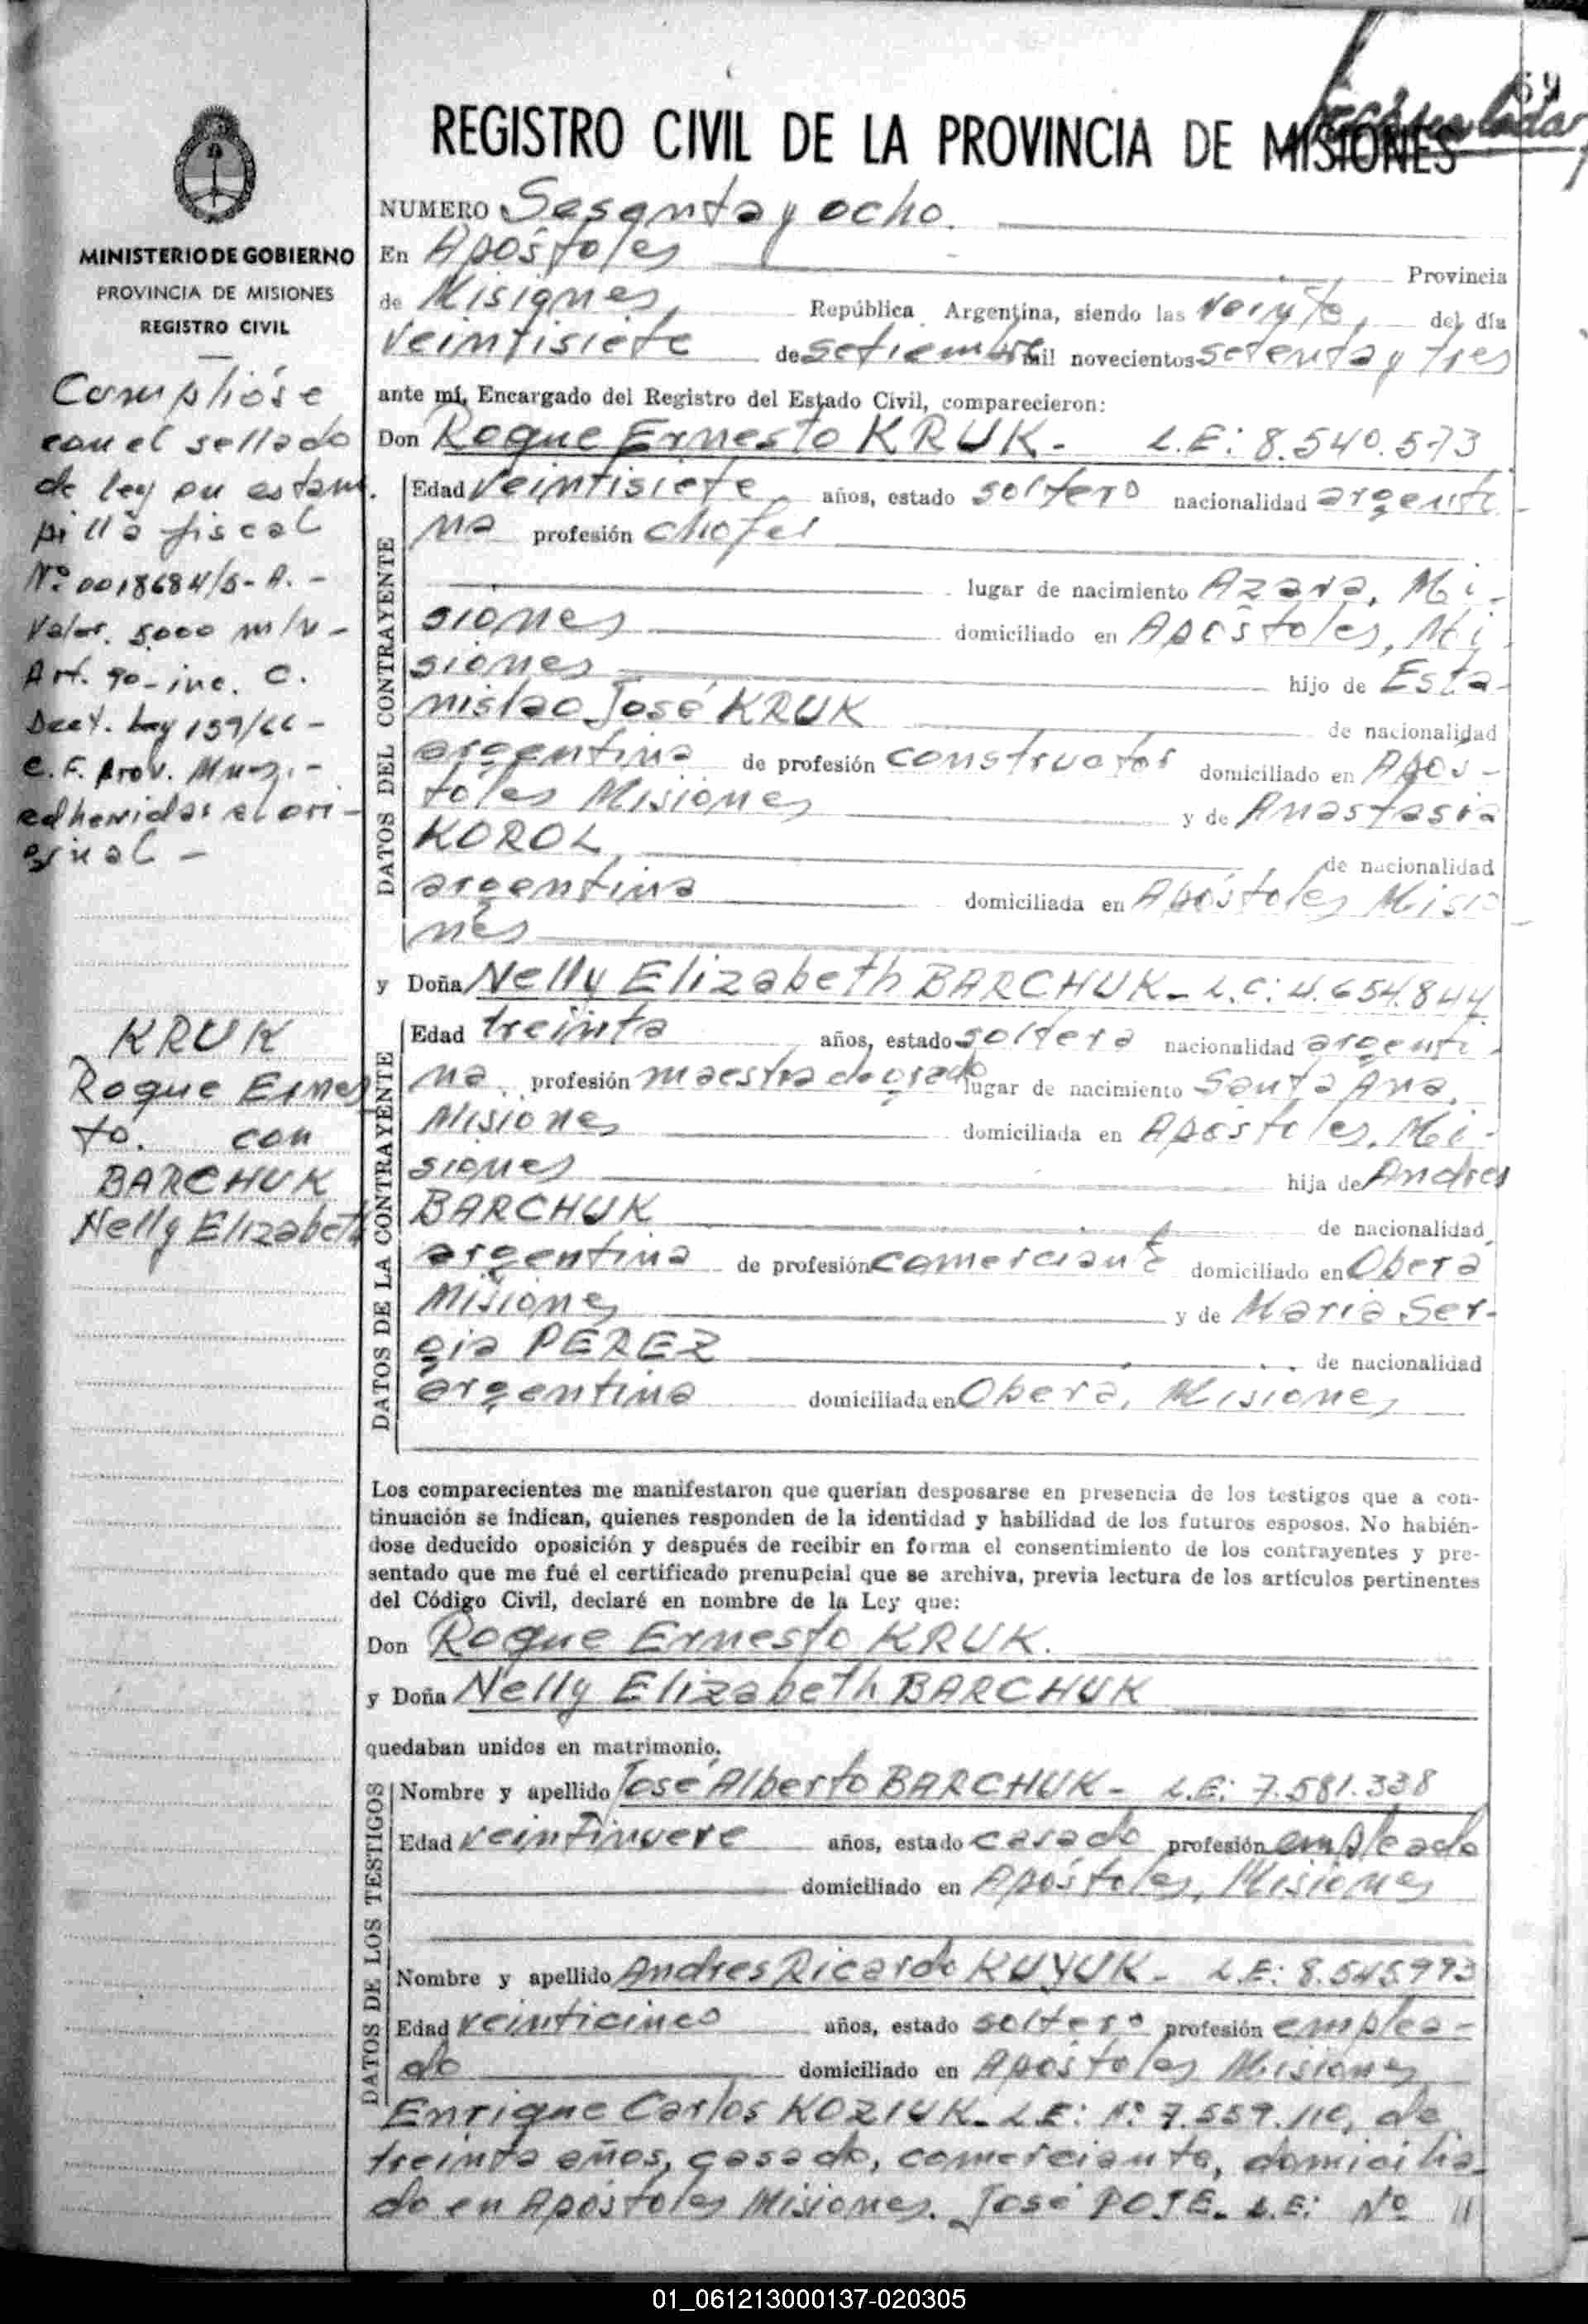 64
REGISTRO CIVIL DE LA PROVINCIA DE MISIONES
NUMERO Sesenta y ocho.
En Apóstoles Provincia
de Misiones, República Argentina, siendo las veinte, del día
veintisiete de setiembre mil novecientos setenta y tres
ante mí, Encargado del Registro del Estado Civil, comparecieron:
Don Roque Ernesto KRUK - L.E: 8.540.573
DATOS DEL CONTRAYENTE
Edad veintisiete, años, estado soltero nacionalidad argenti-
na profesión chofer
lugar de nacimiento Azara, Mi-
siones domiciliado en Apóstoles, Mi-
siones hijo de Esta-
nislao José KRUK de nacionalidad
argentina de profesión constructor domiciliado en Após-
toles Misiones y de Anastasia
KOROL de nacionalidad
argentina domiciliada en Apóstoles Misio-
nes
y Doña Nelly Elizabeth BARCHUK - L.C: 4.654.844
DATOS DE LA CONTRAYENTE
Edad treinta años, estado soltera nacionalidad argenti-
na profesión maestra de grado lugar de nacimiento Santa Ana,
Misiones domiciliada en Apóstoles, Mi-
siones hija de Andres
BARCHUK de nacionalidad
argentina de profesión comerciante domiciliado en Oberá
Misiones y de Maria Ser-
gia PEREZ de nacionalidad
argentina domiciliada en Oberá, Misiones
Los comparecientes me manifestaron que querían desposarse en presencia de los testigos que a con-
tinuación se indican, quienes responden de la identidad y habilidad de los futuros esposos. No habién-
dose deducido oposición y después de recibir en forma el consentimiento de los contrayentes y pre-
sentado que me fué el certificado prenupcial que se archiva, previa lectura de los artículos pertinentes
del Código Civil, declaré en nombre de la Ley que:
Don Roque Ernesto KRUK.
y Doña Nelly Elizabeth BARCHUK
quedaban unidos en matrimonio.
DATOS DE LOS TESTIGOS
Nombre y apellido José Alberto BARCHUK - L.E: 7.581.338
Edad veintinueve años, estado casado profesión empleado
domiciliado en Apóstoles, Misiones
Nombre y apellido Andres Ricardo KUYUK - L.E: 8.545.993
Edad veinticinco años, estado soltero profesión emplea-
do domiciliado en Apóstoles Misiones
Enrique Carlos KOZIUK - L.E: Nº 7.559.110, de
treinta años, casado, comerciante, domicilia-
do en Apóstoles Misiones. José POJE - L.E: Nº 11
MINISTERIO DE GOBIERNO
PROVINCIA DE MISIONES
REGISTRO CIVIL
Complióse
con el sellado
de ley en estam-
pilla fiscal
Nº 0018684/5 - A. -
Valor. 5.000 m/n -
Art. 90 - inc. C.
Decr. Ley 159/66 -
C.F. Prov. Mnes. -
adheridas al ori-
ginal -
KRUK
Roque Ernes
to. con
BARCHUK
Nelly Elizabeth
01_061213000137-020305